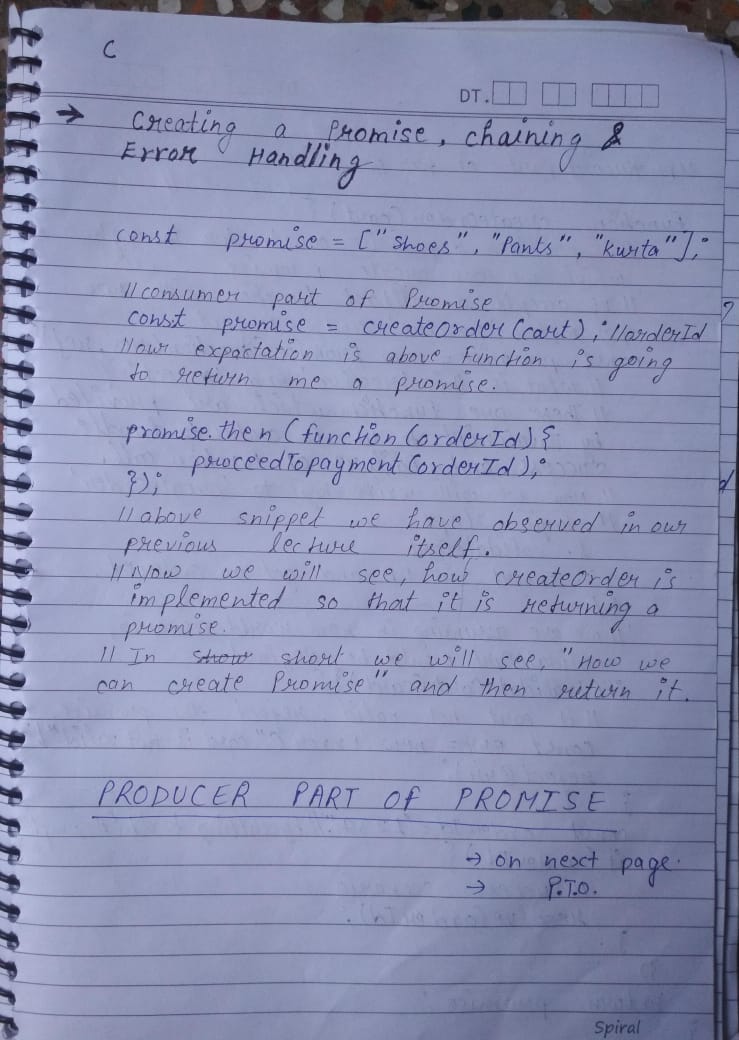 C
DT.
→ Creating a Promise, chaining &
Error Handling
const promise = ["shoes", "Pants", "kurta"];
//consumer part of Promise
const promise = createorder(cart); //orderId
//our expactation is above function is going
to return me a promise.
promise.then(function(orderId){
proceedTopayment(orderId);
});
//above snippet we have observed in our
previous lecture itself.
//Now we will see, how createorder is
implemented so that it is returning a
promise.
// In show short we will see, "How we
can create Promise" and then return it.
PRODUCER PART Of PROMISE
→ on next page.
→ P.T.O.
Spiral